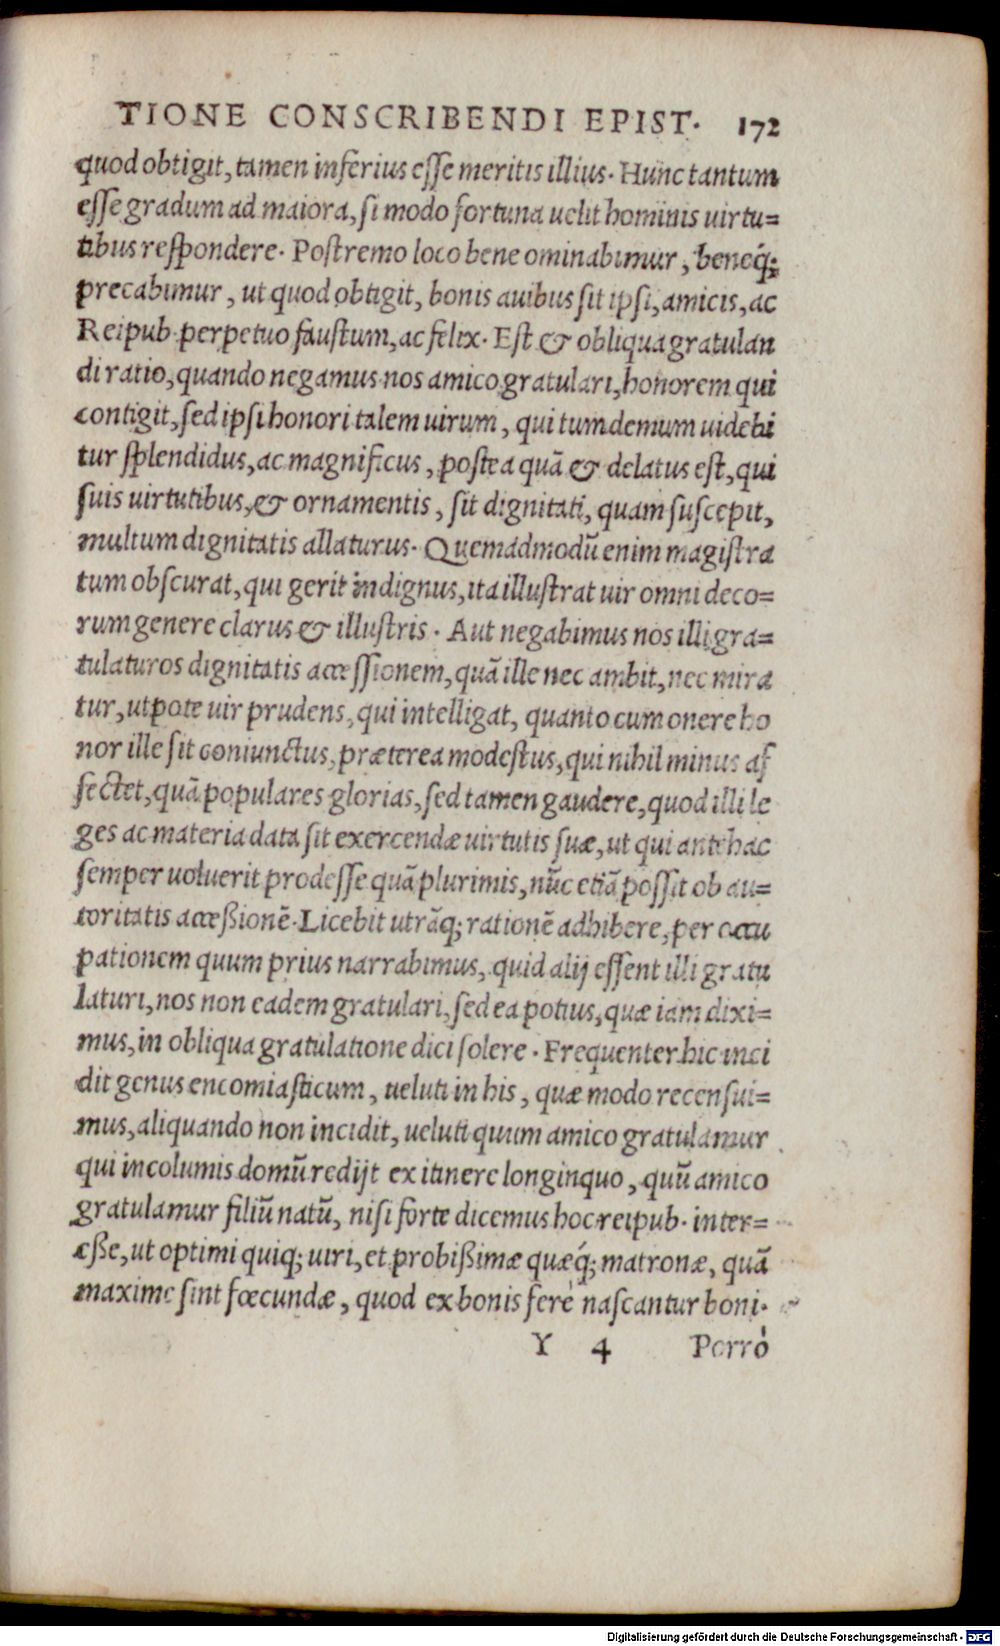 TIONE CONSCRIBENDI EPIST. 172
quod obtigit, tamen inferius esse meritis illius. Hunc tantum
esse gradum ad maiora, si modo fortuna uelit hominis uirtu=
tibus respondere. Postremo loco bene ominabimur, beneq́;
precabimur, ut quod obtigit, bonis auibus sit ipsi, amicis, ac
Reipub. perpetuo faustum, ac felix. Est & obliqua gratulan
di ratio, quando negamus nos amico gratulari, honorem qui
contigit, sed ipsi honori talem uirum, qui tum demum uidebi
tur splendidus, ac magnificus, postea quã & delatus est, qui
suis uirtutibus, & ornamentis, sit dignitati, quam suscepit,
multum dignitatis allaturus. Quemadmodũ enim magistra
tum obscurat, qui gerit indignus, ita illustrat uir omni deco=
rum genere clarus & illustris. Aut negabimus nos illi gra=
tulaturos dignitatis accessionem, quã ille nec ambit, nec mira
tur, utpote uir prudens, qui intelligat, quanto cum onere ho
nor ille sit coniunctus, præterea modestus, qui nihil minus af
fectet, quã populares glorias, sed tamen gaudere, quod illi le
ges ac materia data sit exercendæ uirtutis suæ, ut qui antehac
semper uoluerit prodesse quã plurimis, nũc etiã possit ob au=
toritatis acceßionẽ. Licebit utrãq; rationẽ adhibere, per occu
pationem quum prius narrabimus, quid alij essent illi gratu
laturi, nos non eadem gratulari, sed ea potius, quæ iam dixi=
mus, in obliqua gratulatione dici solere. Frequenter hic inci
dit genus encomiasticum, ueluti in his, quæ modo recensui=
mus, aliquando non incidit, ueluti quum amico gratulamur
qui incolumis domũ redijt ex itinere longinquo, quũ amico
gratulamur filiũ natũ, nisi forte dicemus hoc reipub. inter=
eße, ut optimi quiq; uiri, et probißimæ quæq́; matronæ, quã
maxime sint fœcundæ, quod ex bonis ferè nascantur boni.
Y 4 Porrò
Digitalisierung gefördert durch die Deutsche Forschungsgemeinschaft - DFG